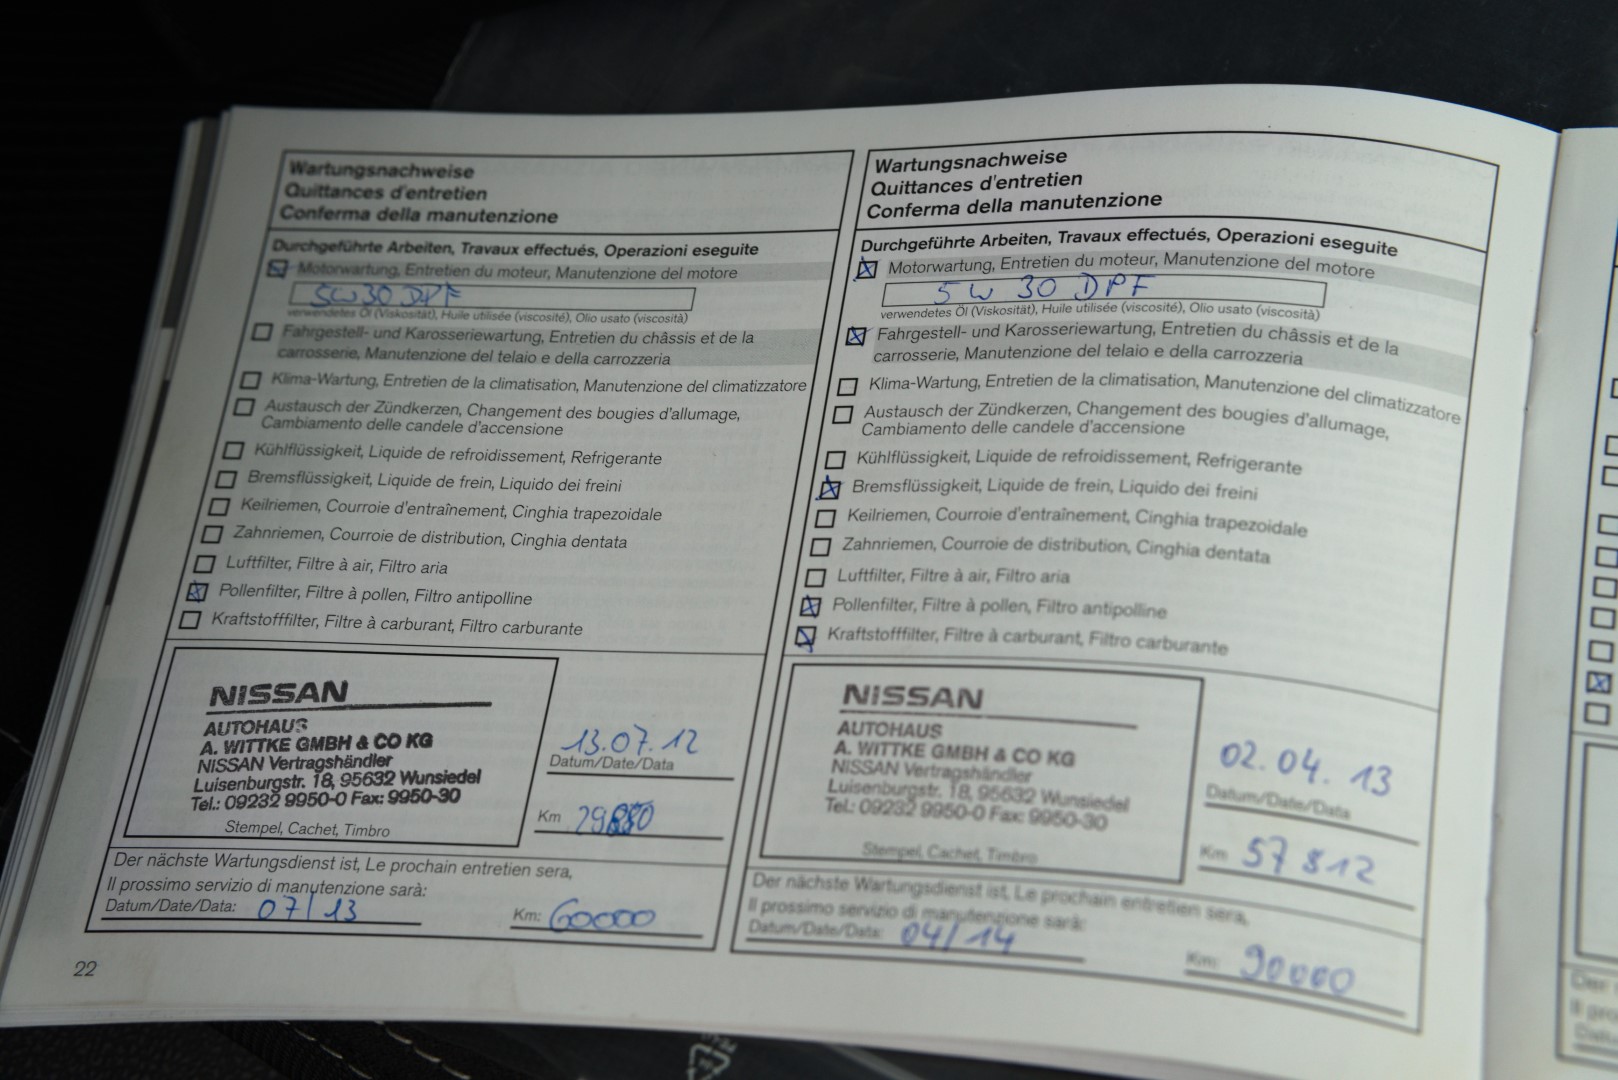 Wartungsnachweise
Quittances d'entretien
Conferma della manutenzione
Durchgeführte Arbeiten, Travaux effectués, Operazioni eseguite
Motorwartung, Entretien du moteur, Manutenzione del motore
5W30 DPF
verwendetes Öl (Viskosität), Huile utilisée (viscosité), Olio usato (viscosità)
Fahrgestell- und Karosseriewartung, Entretien du châssis et de la
carrosserie, Manutenzione del telaio e della carrozzeria
Klima-Wartung, Entretien de la climatisation, Manutenzione del climatizzatore
Austausch der Zündkerzen, Changement des bougies d'allumage,
Cambiamento delle candele d'accensione
Kühlflüssigkeit, Liquide de refroidissement, Refrigerante
Bremsflüssigkeit, Liquide de frein, Liquido dei freini
Keilriemen, Courroie d'entraînement, Cinghia trapezoidale
Zahnriemen, Courroie de distribution, Cinghia dentata
Luftfilter, Filtre à air, Filtro aria
Pollenfilter, Filtre à pollen, Filtro antipolline
Kraftstofffilter, Filtre à carburant, Filtro carburante
NISSAN
AUTOHAUS
A. WITTKE GMBH & CO KG
NISSAN Vertragshändler
Luisenburgstr. 18, 95632 Wunsiedel
Tel.: 09232 9950-0 Fax: 9950-30
Stempel, Cachet, Timbro
13.07.12
Datum/Date/Data
Km 29880
Der nächste Wartungsdienst ist, Le prochain entretien sera,
Il prossimo servizio di manutenzione sarà:
Datum/Date/Data: 07/13 Km: 60000
22
Wartungsnachweise
Quittances d'entretien
Conferma della manutenzione
Durchgeführte Arbeiten, Travaux effectués, Operazioni eseguite
Motorwartung, Entretien du moteur, Manutenzione del motore
5W 30 DPF
verwendetes Öl (Viskosität), Huile utilisée (viscosité), Olio usato (viscosità)
Fahrgestell- und Karosseriewartung, Entretien du châssis et de la
carrosserie, Manutenzione del telaio e della carrozzeria
Klima-Wartung, Entretien de la climatisation, Manutenzione del climatizzatore
Austausch der Zündkerzen, Changement des bougies d'allumage,
Cambiamento delle candele d'accensione
Kühlflüssigkeit, Liquide de refroidissement, Refrigerante
Bremsflüssigkeit, Liquide de frein, Liquido dei freini
Keilriemen, Courroie d'entraînement, Cinghia trapezoidale
Zahnriemen, Courroie de distribution, Cinghia dentata
Luftfilter, Filtre à air, Filtro aria
Pollenfilter, Filtre à pollen, Filtro antipolline
Kraftstofffilter, Filtre à carburant, Filtro carburante
NISSAN
AUTOHAUS
A. WITTKE GMBH & CO KG
NISSAN Vertragshändler
Luisenburgstr. 18, 95632 Wunsiedel
Tel.: 09232 9950-0 Fax: 9950-30
Stempel, Cachet, Timbro
02.04.13
Datum/Date/Data
Km 57 812
Der nächste Wartungsdienst ist, Le prochain entretien sera,
Il prossimo servizio di manutenzione sarà:
Datum/Date/Data: 04/14 Km: 90000